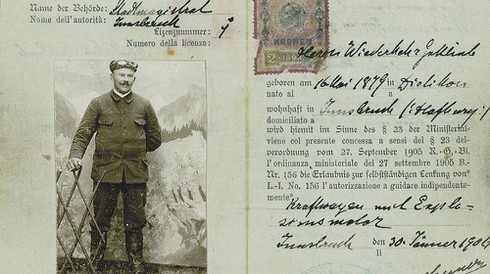 Name der Behörde: Stadtmagistrat
Nome dell'autorità: Innsbruck
Lizenznummer: 1
Numero della licenza:
KRONEN
2
Herrn Wiederkehr Gottlieb
geboren am 16 Mai 1879 in Dietikon
nato al a
wohnhaft in Innsbruck
domiciliato a
wird hiemit im Sinne des § 23 der Ministerial-
viene col presente concessa a sensi del § 23 del-
verordnung vom 27. September 1905 R.-G.-Bl.
l'ordinanza ministeriale dei 27 settembre 1905 B.-
Nr. 156 die Erlaubnis zur selbständigen Lenkung von"
L.-I. No. 156 l'autorizzazione a guidare indipendente-
mente"
Kraftwagen mit Explo-
sionsmotor
Innsbruck den 30. Jänner
li